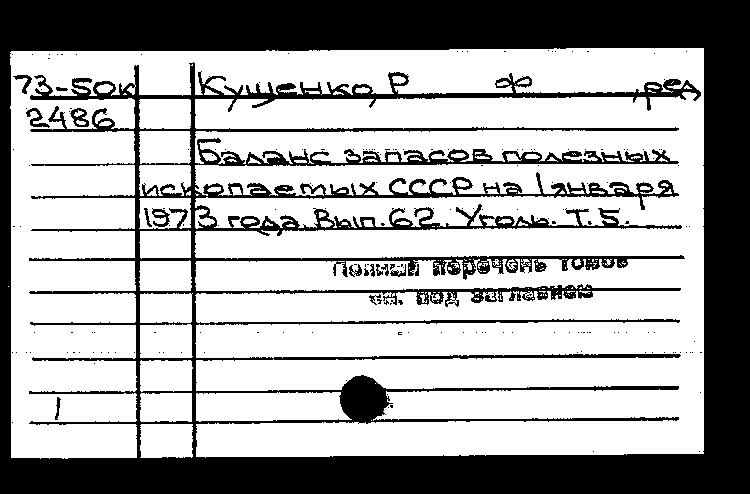 73-50к Кушенко, Р Ф , ред
2486
Баланс запасов полезных
ископаемых СССР на 1 января
1973 года. Вып. 62. Уголь. Т. 5.
Полный перечень томов
см. под заглавием
1